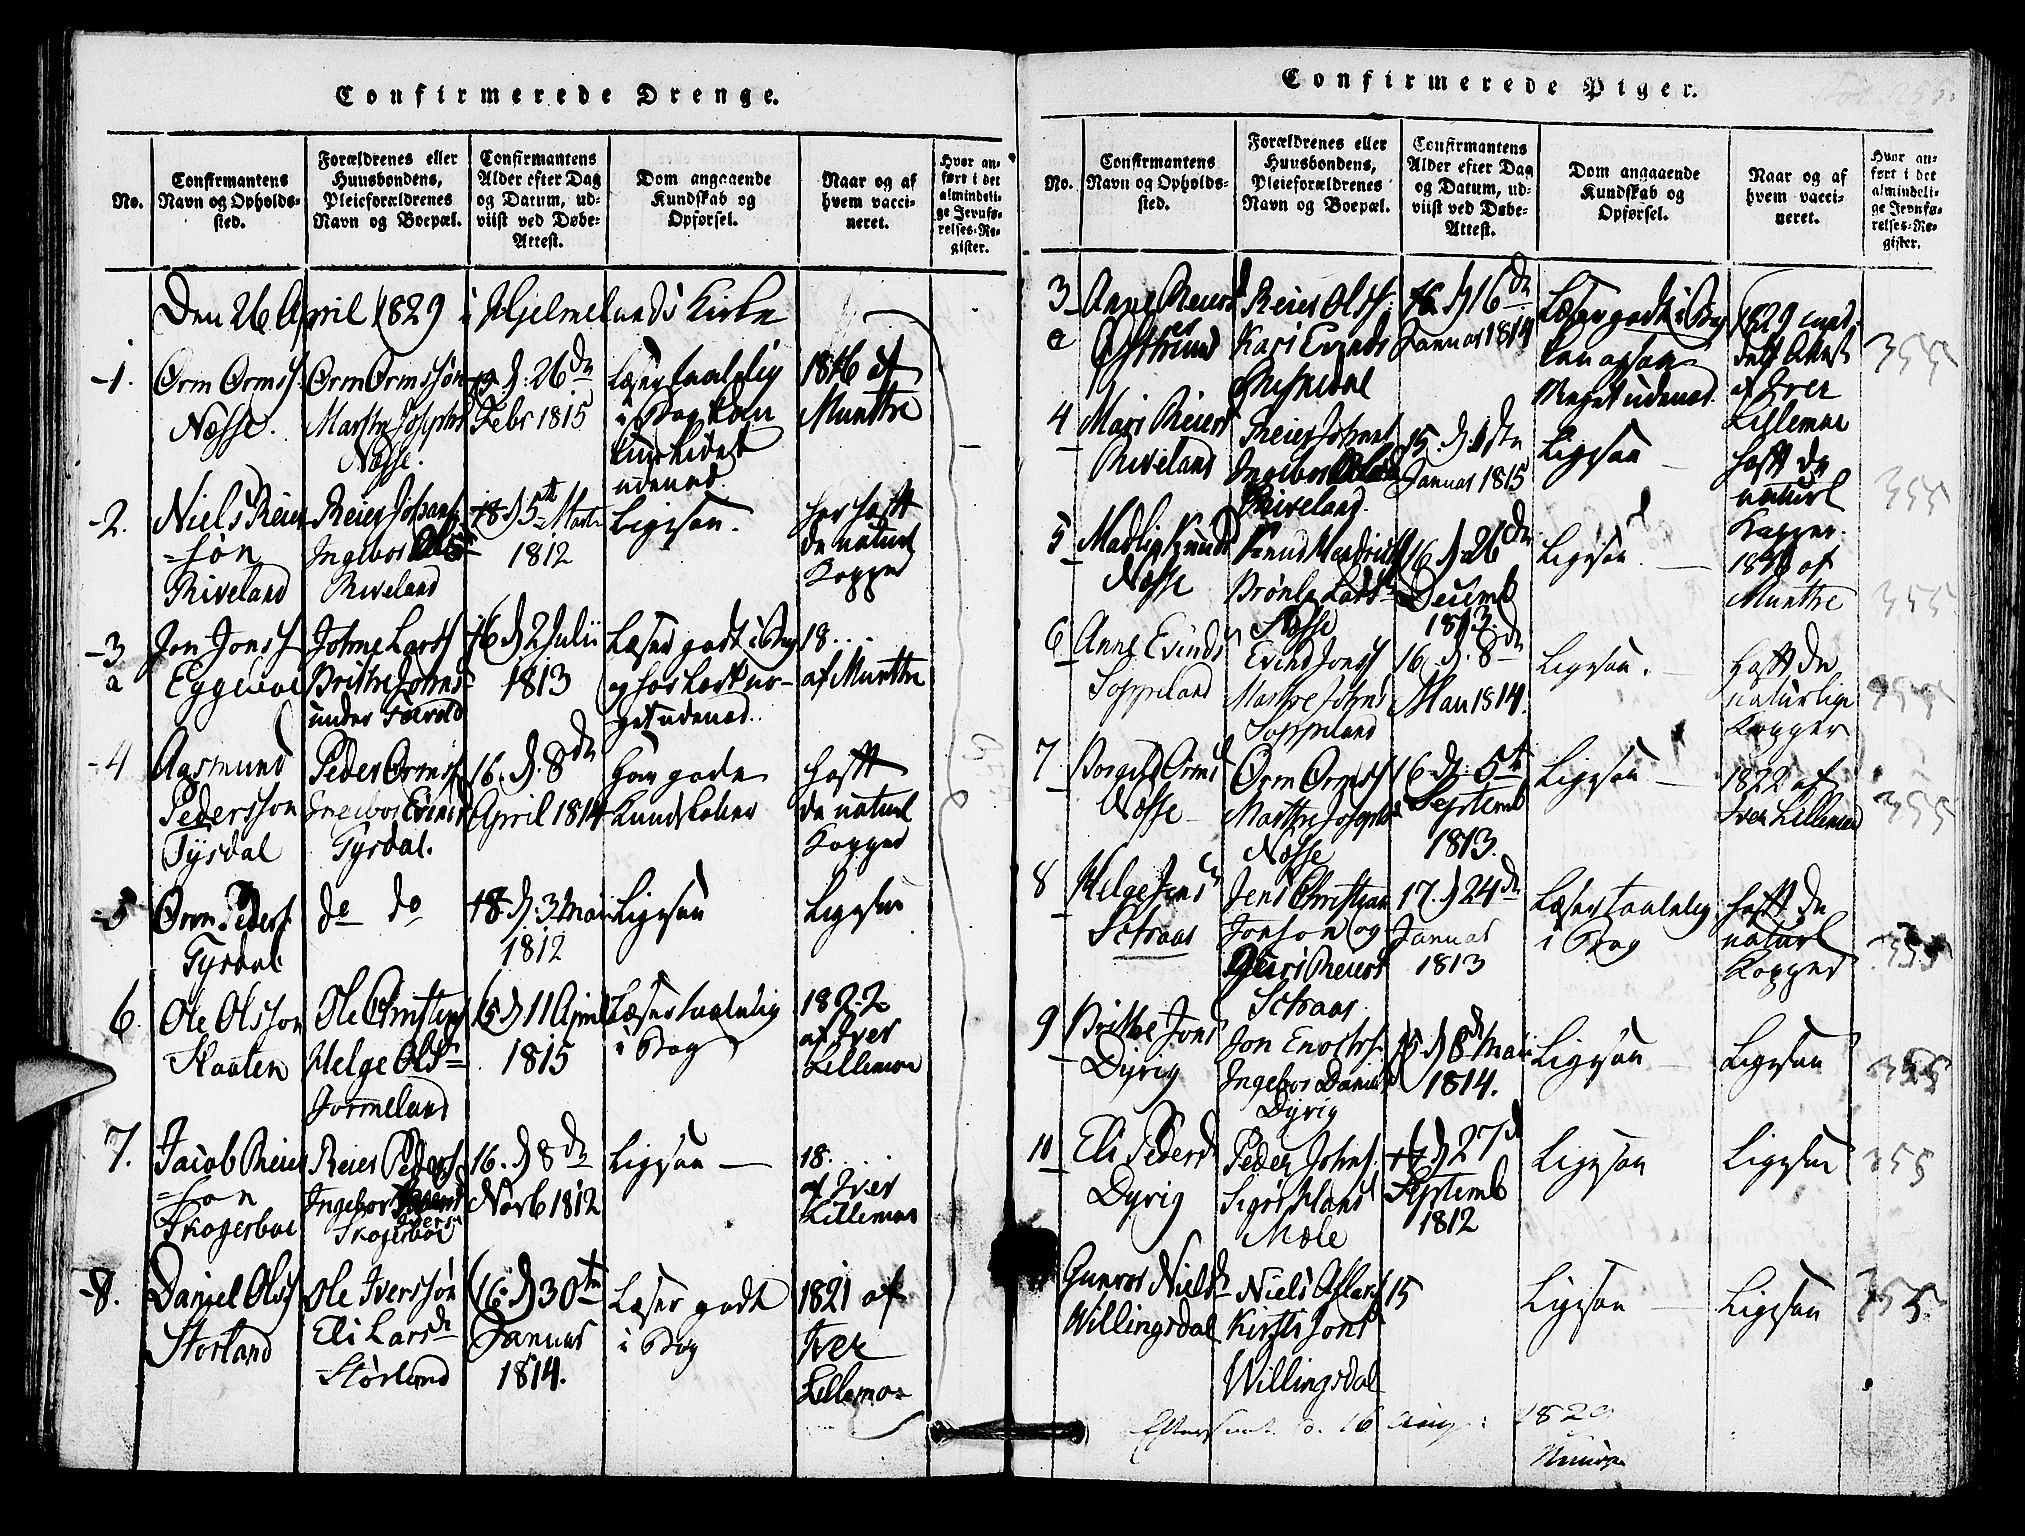 Confirmerede Drenge.
No.
Confirmantens
Navn og Opholds-
sted.
Forældrenes eller
Huusbondens,
Pleieforældrenes
Navn og Boepæl.
Confirmantens
Alder efter Dag
og Datum, ud-
viist ved Døbe-
Attest.
Dom angaaende
Kundskab og
Opførsel.
Naar og af
hvem vacci-
neret.
Hvor an-
ført i det
almindeli-
ge Jevnfø-
relses-Re-
gister.
Den 26 April 1829 i Hjelmelands Kirke
1.
Orm Ormss.
Næsse.
Orm Ormssøn
Marthe Josephs
Næsse.
d. 26de
Febr 1815
Læser taalelig
i Bog kan
kun lidet
udenad
af
Munthe
2.
Niels Reier
søn
Riveland
Reier Johans
Ingebor Olsd
Riveland
18 d 5te Marts
1812
Ligesaa.
har haft
de naturl
Kopper
3
a
Jon Jonss
Eggebøe
Johne Larss
Britthe Johns
under
16 d 2 Julii
1813
Læser godt i Bog
og
udenad.
18...
af Munthe
4
Aasmund
Pedersson
Tysdal
Peder Ormss
Ingebor Evinds
Tysdal.
16. d. 8de
April 1814
gode
Kundskaber
haft
de naturl
Kopper
5
Orm Peders.
Tysdal
do do
18 d. 3 Mai
1812
Ligesaa
Ligesaa
6.
Ole Olsson
Ole Christens
Helge Olsd
Jørmeland
15 d 11 April
1815
Læser taalelig
i Bog
1822
af Iver
Lillemoe
7.
Jacob Reier
son
Skogerboe
Reier Peders
Ingebor Ivers
Skogerboe
16. d 8de
Novb 1812
Ligesaa
18....
af Iver
Lillemoe
8.
Daniel Olss
Storland
Ole Iverssøn
Eli Larsd
Storland
16. d 30te
Januar
1814.
Læser godt
i Bog
1821 af
Iver
Lillemoe
Confirmerede Piger.
No.
Confirmantens
Navn og Opholds-
sted.
Forældrenes eller
Huusbondens,
Pleieforældrenes
Navn og Boepæl.
Confirmantens
Alder efter Dag
og Datum, ud-
viist ved Døbe-
Attest.
Dom angaaende
Kundskab og
Opførsel.
Naar og af
hvem vacci-
neret.
Hvor an-
ført i det
almindeli-
ge Jevnfø-
relses-Re-
gister.
3
a
Anne Reiers
Østhuus
Reier Olss.
Kari Evinds
16 d 16de
Januar 1814
Læser godt i Bog
kan ogsaa
Meget udenad.
1829
Attest
af Iver
Lillemoe
355
4
Mari Reiers
Riveland
Reier Johans
Ingebor Olsd
Riveland.
15. d. 1ste
Januar 1815
Ligesaa
haft de
naturl
Kopper.
355
5
Madli Knuds
Næsse
Knud
Brönla Larsd
Næsse
16 d 26de
Decemb
1813.
Ligesaa.
af
Munthe
355
6
Anne Evinds
Soppeland
Evind Jonss
Marthe Johns
Soppeland
16. d. 8de
Mai 1814.
Ligesaa.
haft de
naturlige
Kopper
355
7
Borgild Orms
Næsse
Orm Ormss
Marthe Josephs
Næsse
16 d. 5te
Septemb
1813.
Ligesaa
1822 af
Iver Lillemoe
355
8
Helge Jensd
Sctraas
Jens Christian
Jonson og
Guri Reiers
Sctraas
17. d 24de
Januar
1813
Læser taalelig
i Bog
haft de
naturl
Kopper
355
9
Britthe Jons
Dyrig
Jon Enochs.
Ingebor Daniels
Dyrig
15 d 8de Mai
1814.
Ligesaa
Ligesaa
355
10
Eli Pedersd
Dyrig
Peder Johns.
Sigri Hans
Mæle
d 27d
Septemb
1812
Ligesaa
Ligesaa
355
Gunvor Nielsd
Willingsdal
Niels Asslacs
Kirsti Jons
Willingsdal
15
Ligesaa
Ligesaa
355.
d. 16 Aug: 1829